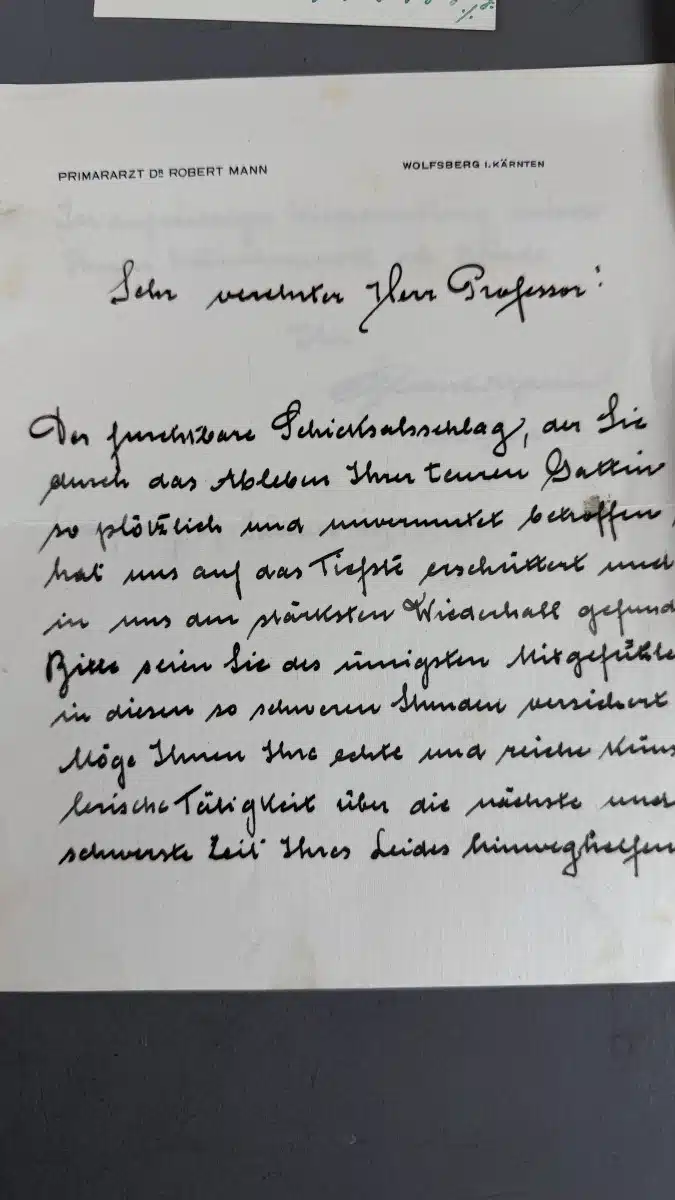 PRIMARARZT DR ROBERT MANN
WOLFSBERG I. KÄRNTEN
Sehr verehrter Herr Professor!
Der furchtbare Schicksalsschlag, der Sie
durch das Ableben Ihrer teuren Gattin
so plötzlich und unvermutet betroffen,
hat uns auf das Tiefste erschüttert und
in uns den stärksten Wiederhall gefund
Bitte seien Sie des innigsten Mitgefühle
in diesen so schweren Stunden versichert
Möge Ihnen Ihre echte und reicheKüns
lerische Tätigkeit über die nächste und
schwerste Zeit Ihres Leides hinweghelfen